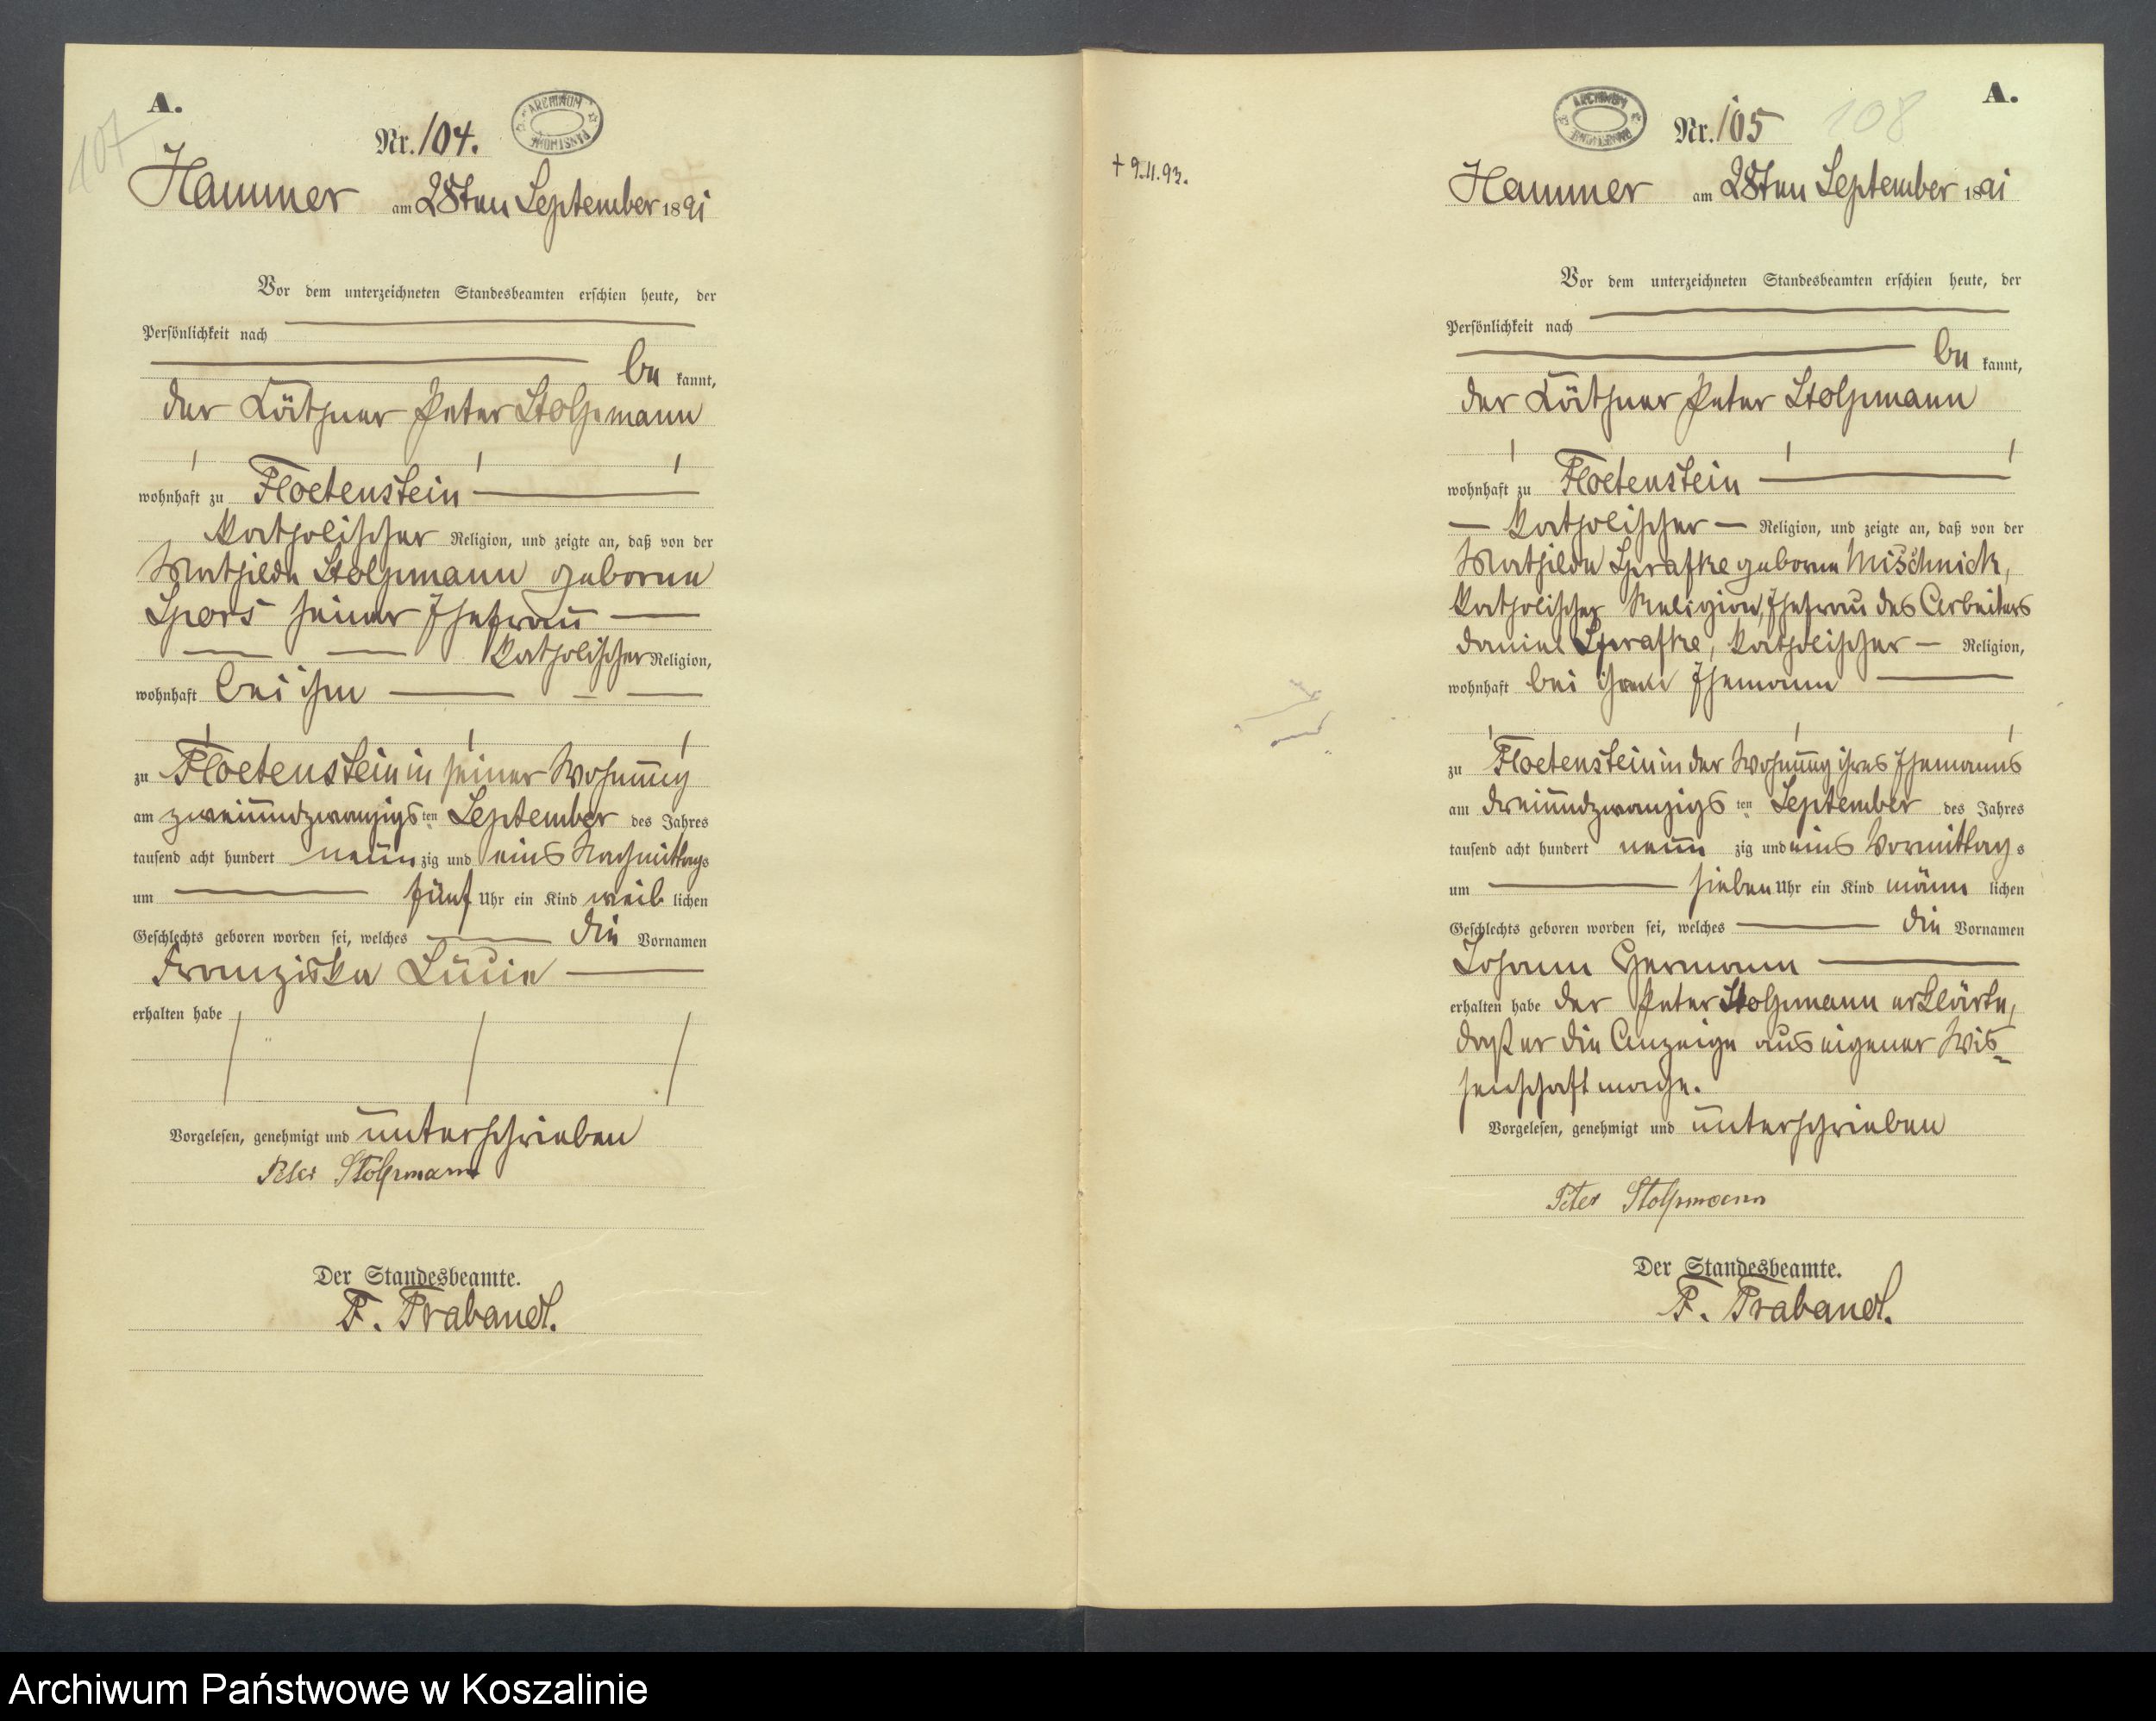 107
A.
Nr. 104.
ARCHIWUM PAŃSTWOWE
Hammer am 28ten September 1891
Vor dem unterzeichneten Standesbeamten erschien heute, der
Persönlichkeit nach
be kannt,
der Käthner Peter Stolpmann
wohnhaft zu Floetenstein
katholischer Religion, und zeigte an, daß von der
Mathilde Stolpmann geborene
Spors seiner Ehefrau
katholischer Religion,
wohnhaft bei ihm
zu Floetenstein in seiner Wohnung
am zweiundzwanzigs ten September des Jahres
tausend acht hundert neun zig und eins Nachmittags
um fünf Uhr ein Kind weib lichen
Geschlechts geboren worden sei, welches die Vornamen
Franziska Lucie
erhalten habe
Vorgelesen, genehmigt und unterschrieben
Peter Stolpmann
Der Standesbeamte.
F. Trabandt.
A.
108
Nr. 105
ARCHIWUM PAŃSTWOWE
† 9.11.92.
Hammer am 28ten September 1891
Vor dem unterzeichneten Standesbeamten erschien heute, der
Persönlichkeit nach
be kannt,
der Käthner Peter Stolpmann
wohnhaft zu Floetenstein
katholischer Religion, und zeigte an, daß von der
Mathilde Sprafke geborene Mischnick,
katholischer Religion, Ehefrau des Arbeiters
Daniel Sprafke, katholischer Religion,
wohnhaft bei ihrem Ehemann
zu Floetenstein in der Wohnung ihres Ehemanns
am dreiundzwanzigs ten September des Jahres
tausend acht hundert neun zig und eins Vormittag s
um sieben Uhr ein Kind männ lichen
Geschlechts geboren worden sei, welches die Vornamen
Johann Hermann
erhalten habe der Peter Stolpmann erklärte,
daß er die Anzeige aus eigener Wis-
senschaft mache.
Vorgelesen, genehmigt und unterschrieben
Peter Stolpmann
Der Standesbeamte.
F. Trabandt.
Archiwum Państwowe w Koszalinie